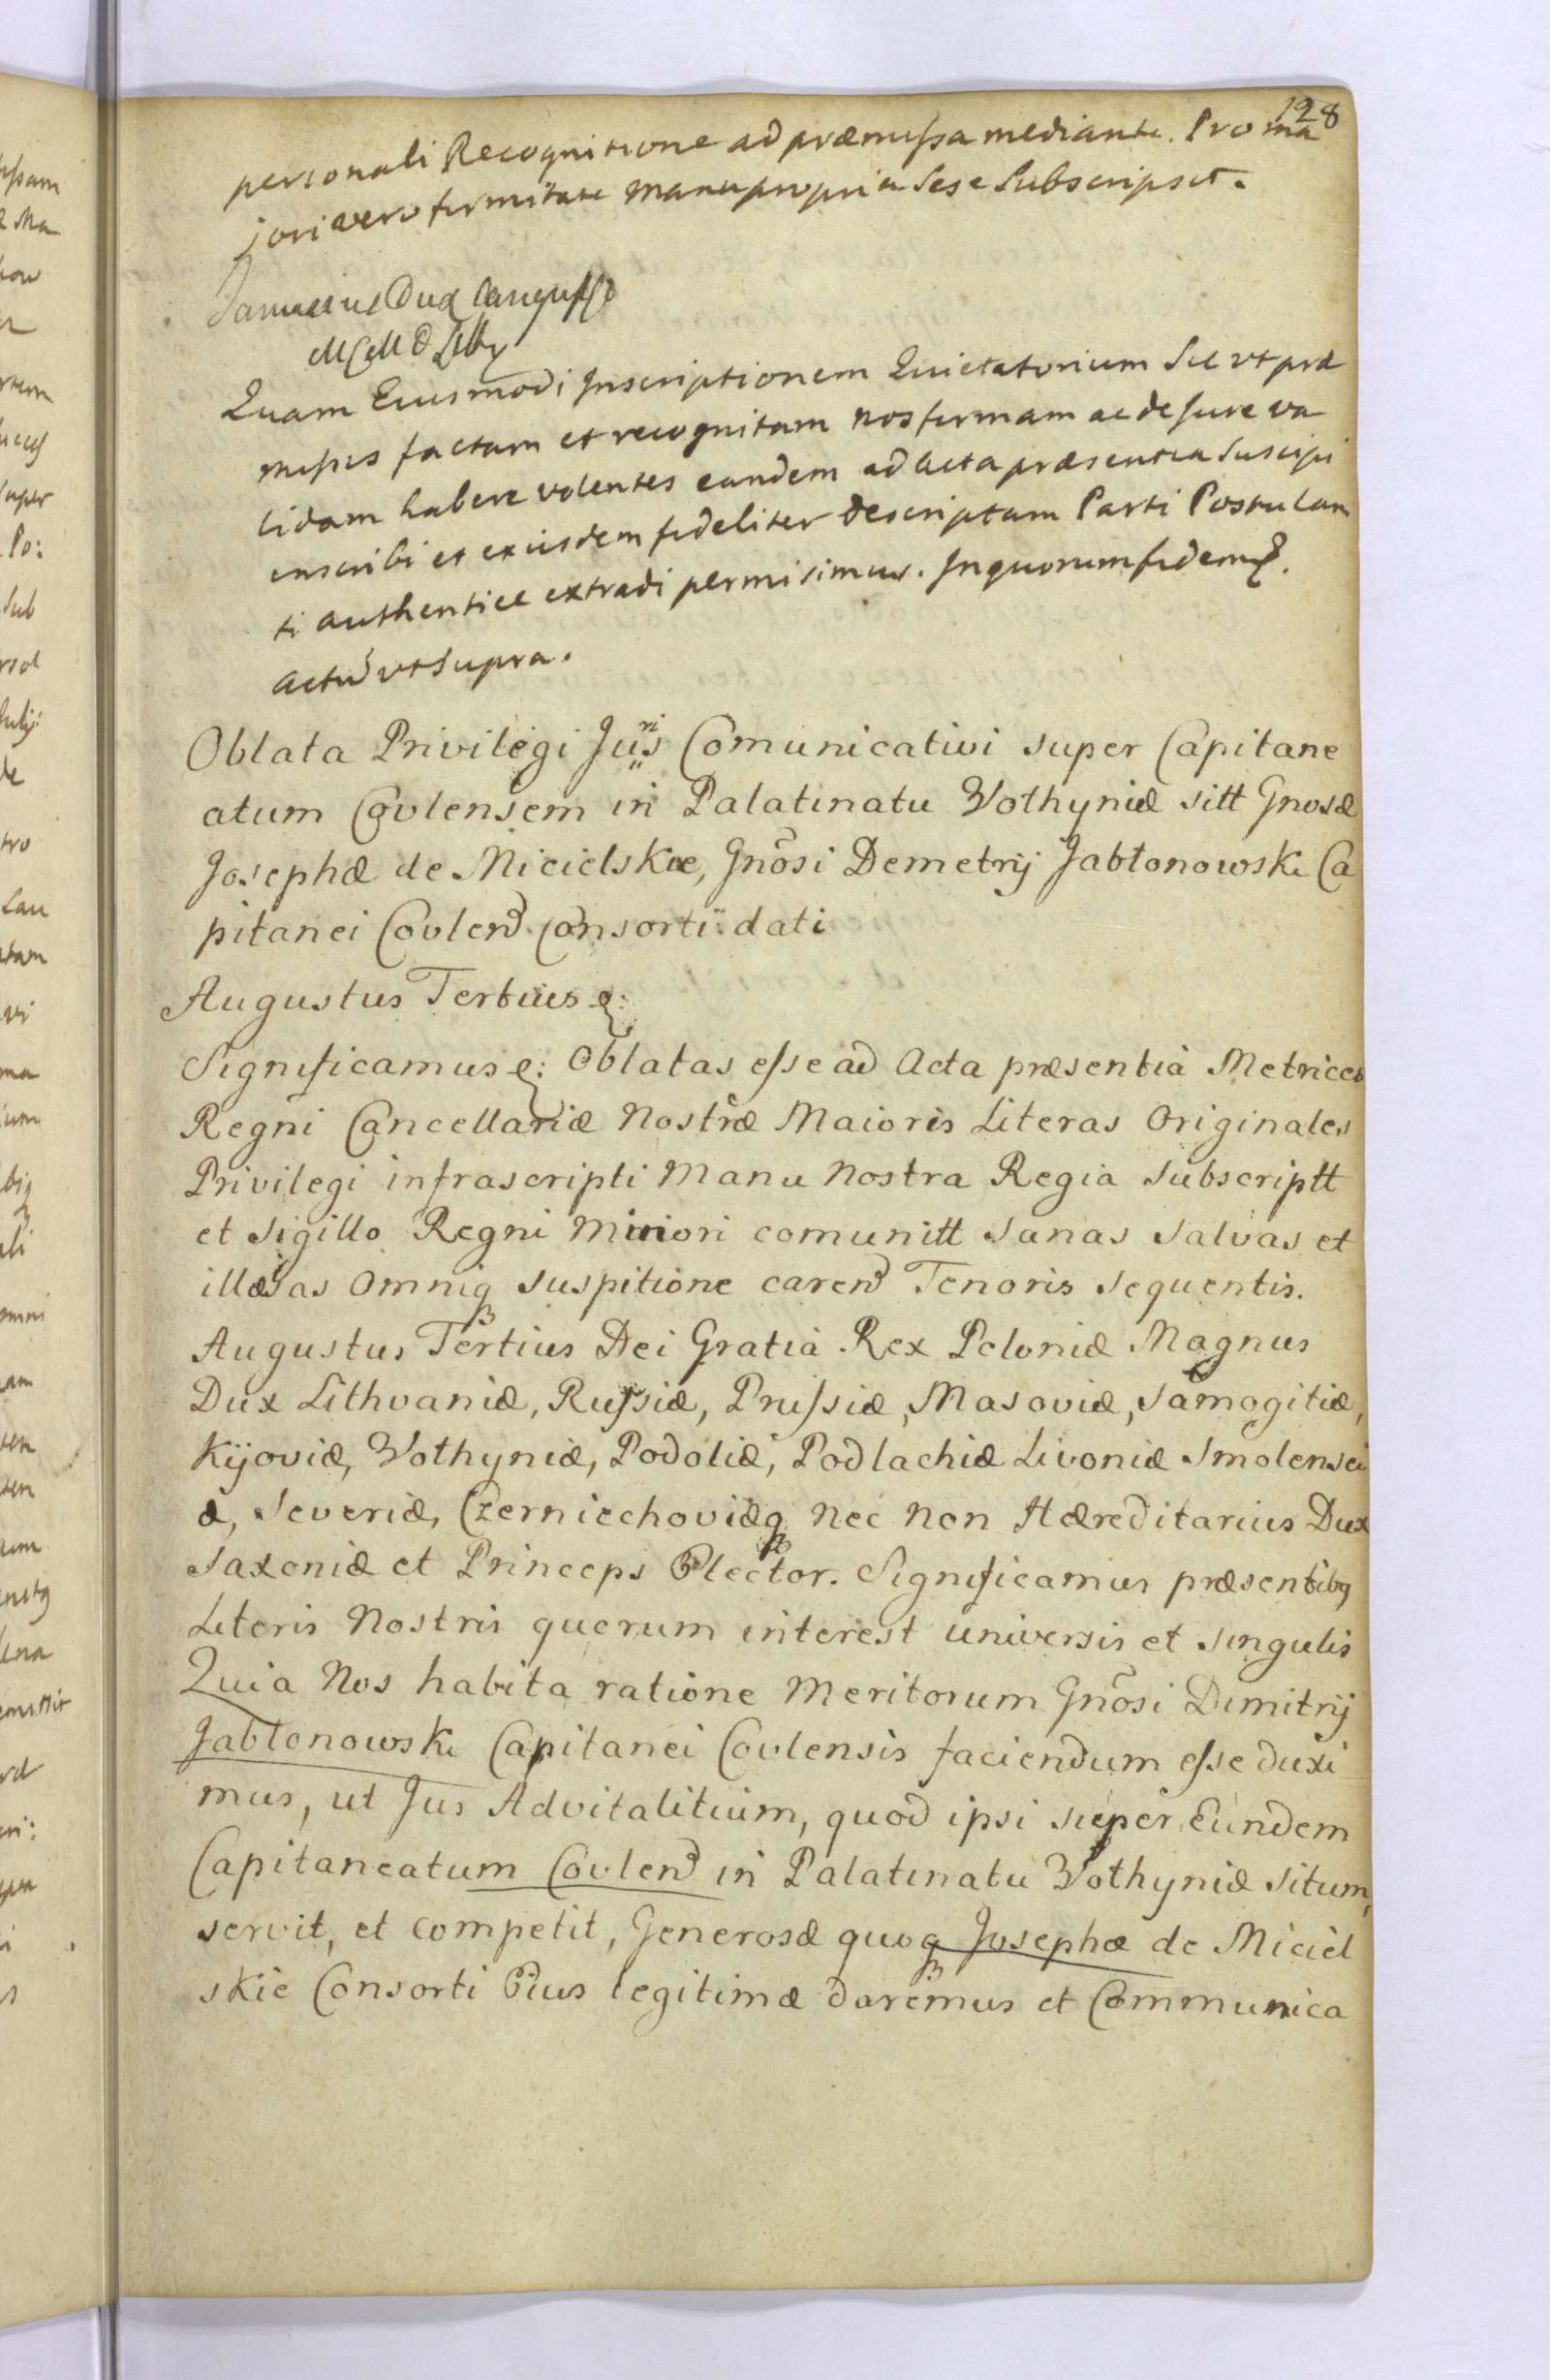 128
personali Recognitione ad præmissa mediante. Pro ma
jori vero firmitate manu propria sese subscripsit.
Janussius Dux Sangusko
Quam Eiusmodi Inscriptionem Quietatoriam sic vt præ
missis factam et recognitam nos firmam ac de Jure va
lidam habere volentes eandem ad Acta præsentia suscipi
inscribi et exiisdem fideliter descriptam Parti Postulan
ti authentice extradi permisimus. In quorum fidem &.
actũ vt supra.
Oblata Privilegi Juris Comunicativi super Capitane
atum Covlensem in Palatinatu Volhyniæ sitt Gnosæ
Josephæ de Micielskie, Gnõsi Demetrij Jabłonowski Ca
pitanei Covlen̄ Consorti dati
Augustus Tertius &:
Significamus &: Oblatas esse ad Acta præsentia Metrices
Regni Cancellariæ Nostræ Maioris Literas Originales
Privilegi infrascripti Manu Nostra Regia subscriptt
et Sigillo Regni Minori comunitt sanas salvas et
illæsas Omniq suspitione caren̄ Tenoris sequentis.
Augustus Tertius Dei Gratia Rex Poloniæ Magnus
Dux Lithvaniæ, Russiæ, Prussiæ, Masoviæ, Samogitiæ,
Kijoviæ, Volhyniæ, Podoliæ, Podlachiæ Livoniæ Smolensci
æ, Severiæ, Czerniechoviæq nec non Hæreditarius Dux
Saxoniæ et Princeps Elector. Significamus præsentibq
Literis Nostris quorum interest universis et singulis
Quia Nos habita ratione Meritorum Gnõsi Dimitrij
Jabłonowski Capitanei Covlensis faciendum esse duxi
mus, ut Jus Advitalitium, quod ipsi super Eundem
Capitaneatum Covlen̄ in Palatinatu Volhyniæ situm,
servit, et competit, Generosæ quoq Josephæ de Miciel
skie Consorti Eius legitimæ daremus et Communica